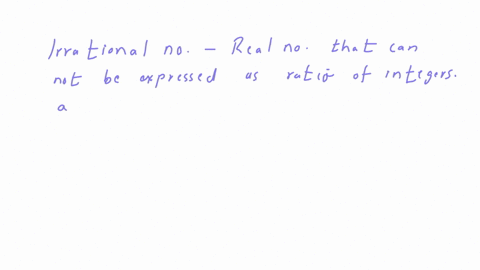 Irrational no. - Real no. that can
not be expressed as ratio of integers.
a